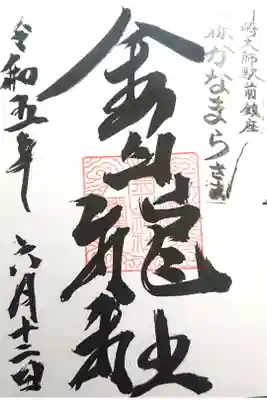 崎大師駅前鎮座
かなまらさま
金山龍神社
令和五年
六月十二日